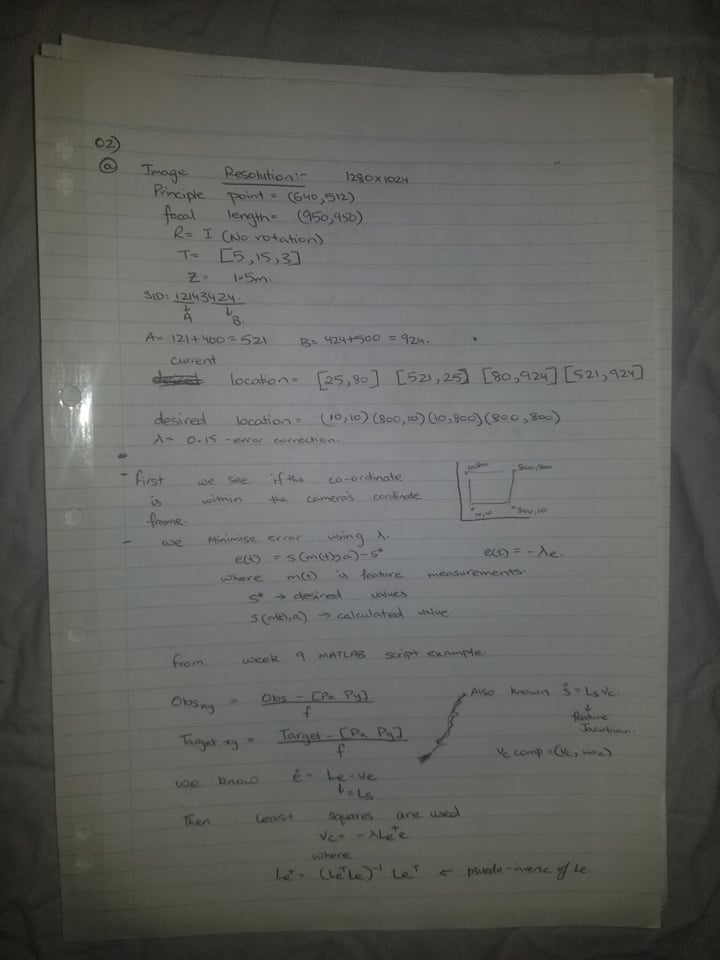 02)
(a) Image Resolution:- 1280x1024
Principle point = (640,512)
focal length = (950,950)
R= I (No rotation)
T= [5,15,3]
Z= 1.5m.
SID: 12143424.
A B.
A= 121+400=521 B= 424+500 = 924.
current
location= [25,80] [521,25] [80,924] [521,924]
desired location= (10,10) (800,10) (10,800) (800,800)
λ= 0.15 -error correction.
- first we see if the co-ordinate
is within the camera's cordinate
frame.
10,800 800,800
10,10 800,10
- we Minimise error using λ.
e(t) = s(m(t),a)-s* e(t) = -λe.
where m(t) is feature measurements.
s* → desired values
s(m(t),a) → calculated value.
from week 9 MATLAB script example.
Obsxy = Obs - [Px Py] / f
Also known ṡ = Ls vc.
feature
Jacobian.
Target xy = Target - [Px Py] / f
Vc comp = (vc, wc)
we know ė = Le . ve
↳ = Ls
Then least squares are used
Vc = -λLe⁺e
where
Le⁺ = (LeᵀLe)⁻¹ Leᵀ ← psuedo-inverse of Le.